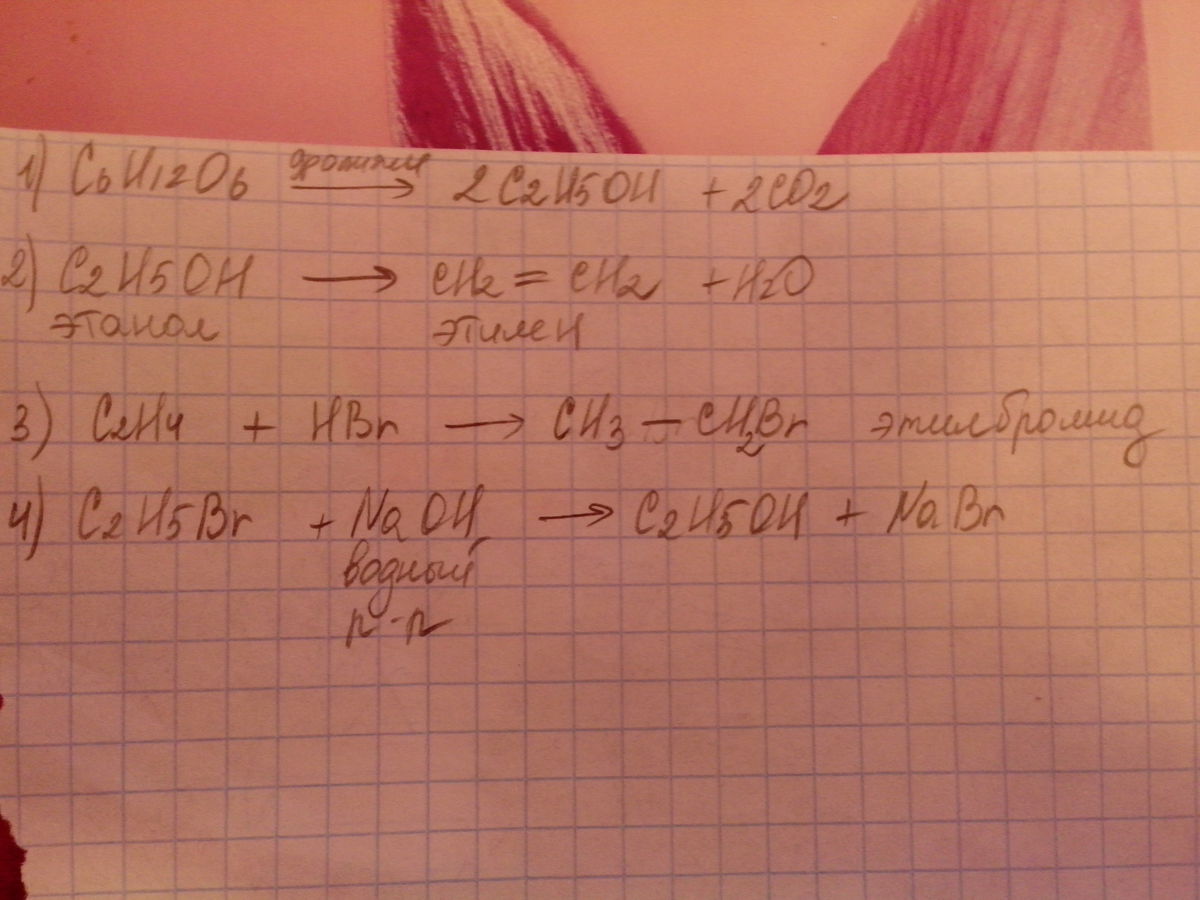 1) C6H12O6 дрожжи → 2C2H5OH + 2CO2
2) C2H5OH → CH2 = CH2 + H2O
этанол этилен
3) C2H4 + HBr → CH3 – CH2Br этилбромид
4) C2H5Br + NaOH → C2H5OH + NaBr
водный
р-р